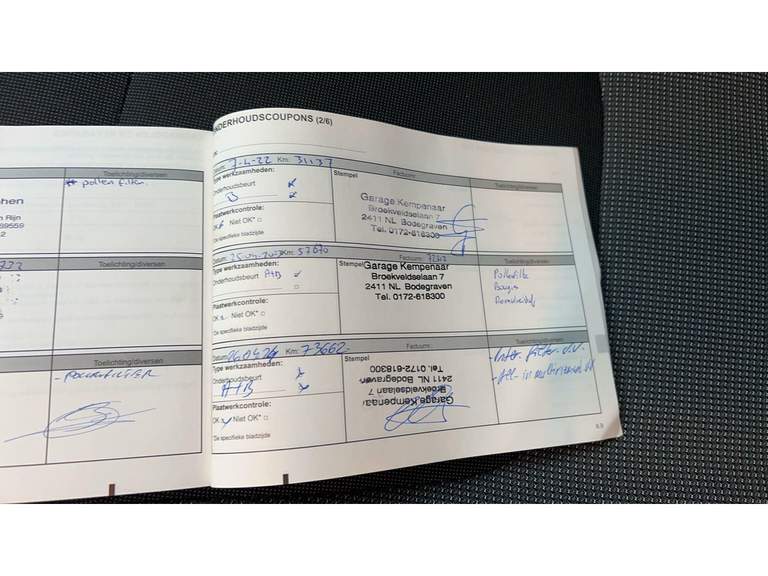 Toelichting/diversen
pollen filter.
hen
n Rijn
39559
2
Toelichting/diversen
Toelichting/diversen
- POLLENFILTER
ONDERHOUDSCOUPONS (2/6)
Datum: 7-4-22 Km: 31137 Factuurnr.:
Type werkzaamheden:
Onderhoudsbeurt
B
Plaatwerkcontrole:
OK Niet OK*
*De specifieke bladzijde
Stempel
Garage Kempenaar
Broekveldselaan 7
2411 NL Bodegraven
Tel. 0172-618300
Toelichting/diversen
Datum: Km: 57670 Factuurnr.:
Type werkzaamheden:
Onderhoudsbeurt A+B
Plaatwerkcontrole:
OK Niet OK*
*De specifieke bladzijde
Stempel
Garage Kempenaar
Broekveldselaan 7
2411 NL Bodegraven
Tel. 0172-618300
Toelichting/diversen
Datum: Km: 73662- Factuurnr.:
Type werkzaamheden:
Onderhoudsbeurt
A+B
Plaatwerkcontrole:
OK Niet OK*
*De specifieke bladzijde
Stempel
Garage Kempenaar
Broekveldselaan 7
2411 NL Bodegraven
Tel. 0172-618300
Toelichting/diversen
- Inter. filter
6.9